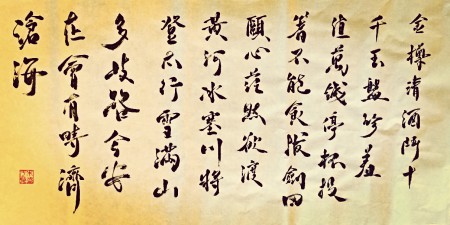 金樽清酒鬥十
千玉盤珍羞
值萬錢停杯投
箸不能食拔劍四
顧心茫然欲渡
黃河冰塞川將
登太行雪滿山
多歧路今安
在會有時濟
滄海